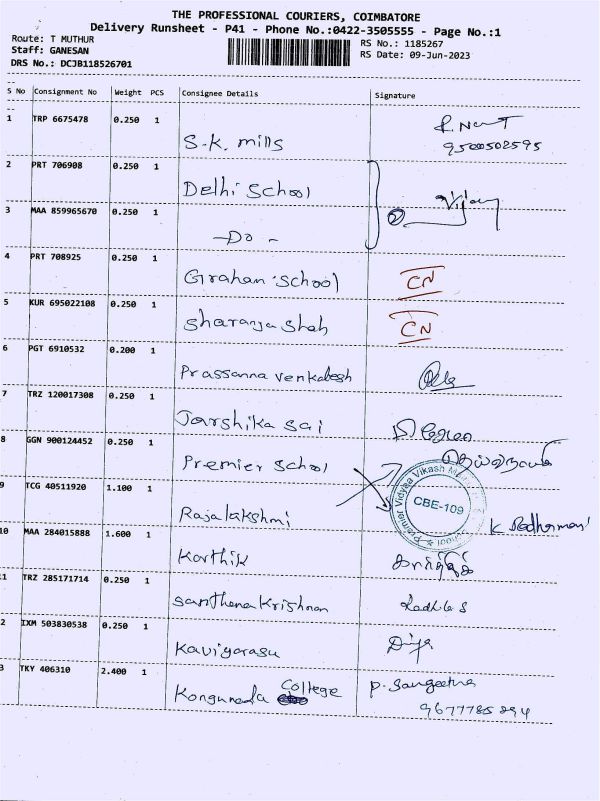 THE PROFESSIONAL COURIERS, COIMBATORE
Delivery Runsheet - P41 - Phone No.:0422-3505555 - Page No.:1
Route: T MUTHUR
RS No.: 1185267
Staff: GANESAN
RS Date: 09-Jun-2023
DRS No.: DCJB118526701
S No Consignment No Weight PCS Consignee Details Signature
1 TRP 6675478 0.250 1
S.K. mills
9500502595
2 PRT 706908 0.250 1
Delhi School
Vijay
3 MAA 859965670 0.250 1
-Do-
4 PRT 708925 0.250 1
Graham School CN
5 KUR 695022108 0.250 1
Sharanya Shah CN
6 PGT 6910532 0.200 1
Prassanna venkatesh
7 TRZ 120017308 0.250 1
Jarshika Sai
8 GGN 900124452 0.250 1
Premier School
Premier Vidyaa Vikash
CBE-109
9 TCG 40511920 1.100 1
Rajalakshmi
10 MAA 284015888 1.600 1
Karthik கார்த்திக்
1 TRZ 285171714 0.250 1
Santhana Krishnan
2 IXM 503830538 0.250 1
Kaviyarasu Divya
3 TKY 406310 2.400 1
Kongunada College P. Sangeetha
9677785294